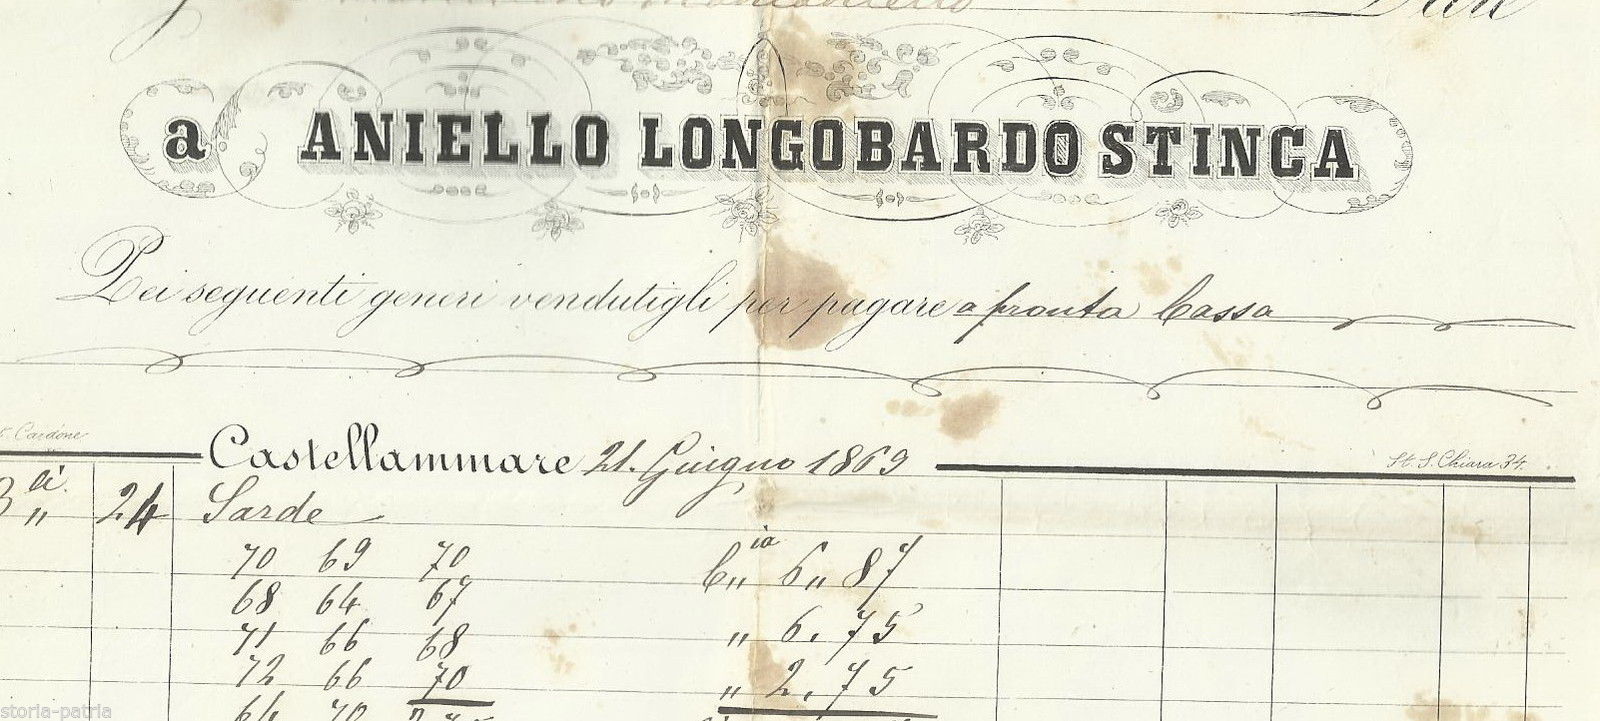 Dare
a ANIELLO LONGOBARDO STINCA
Pei seguenti generi vendutigli per pagare a pronta Cassa
Cardone
Castellammare 21. Giugno 1869
St. S. Chiara 34.
24 Sarde
70 69 70
6 „ 87
68 64 67
„ 6. 75
71 66 68
72 66 70
„ 2. 75
64 70
storia-patria